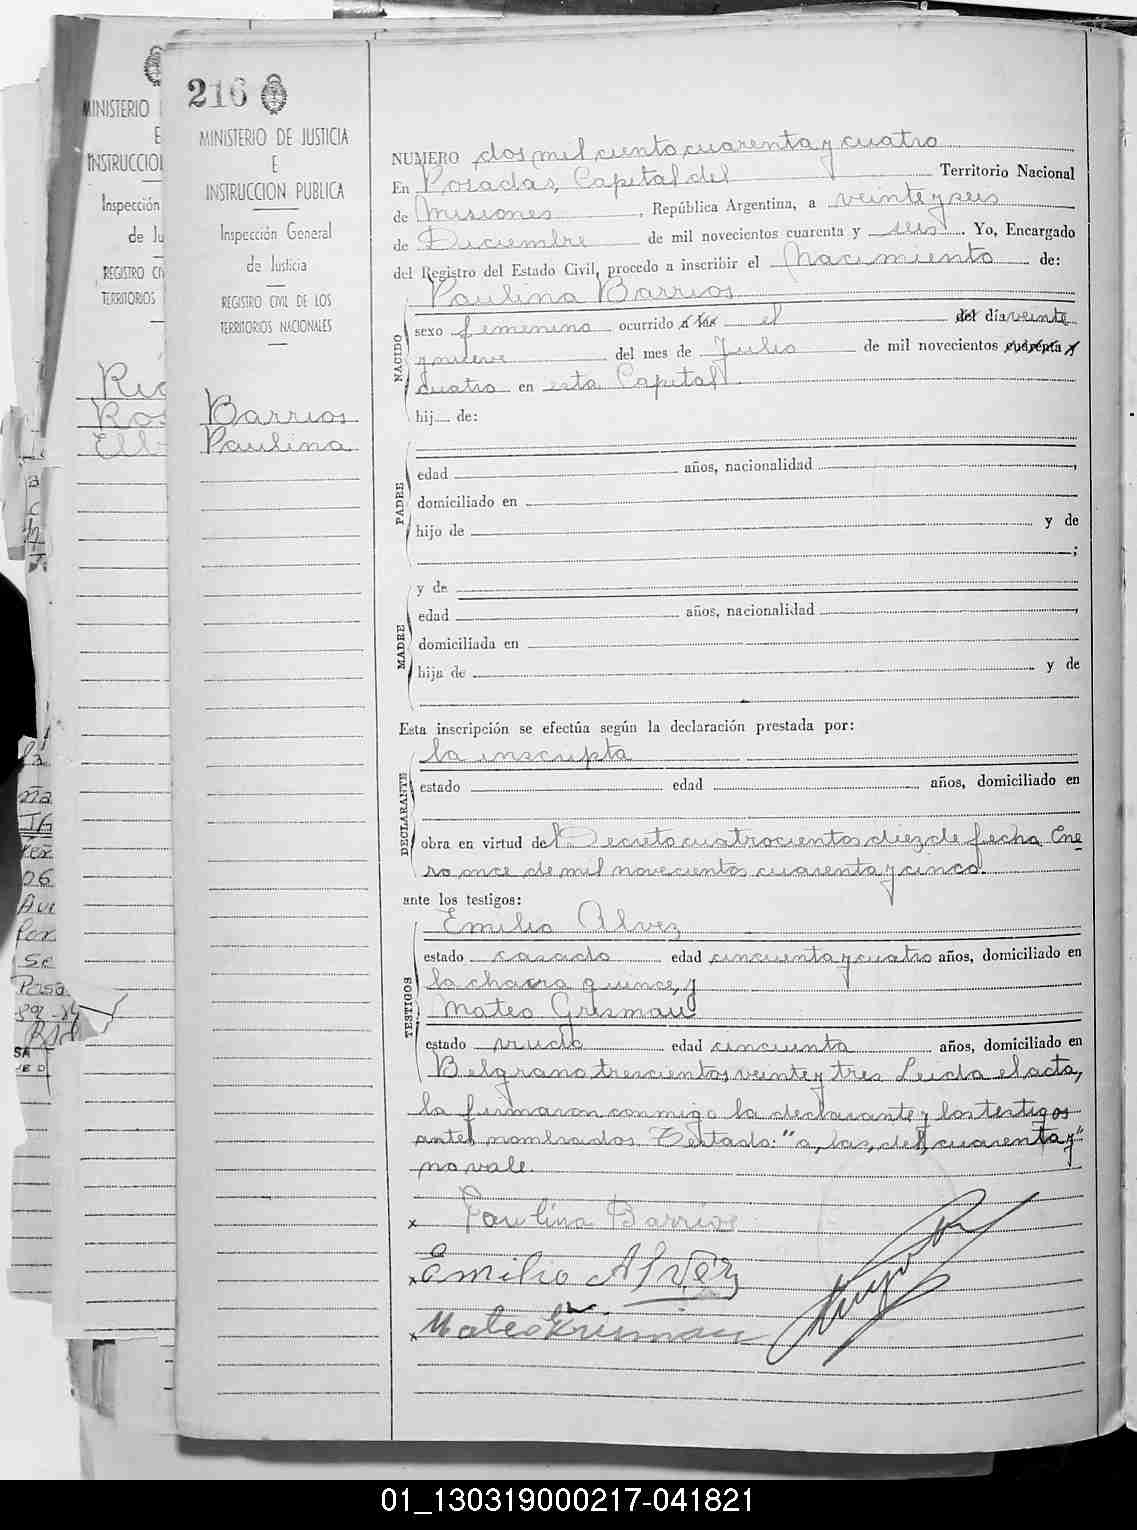 216
MINISTERIO DE JUSTICIA
E
INSTRUCCION PUBLICA
Inspección General
de Justicia
REGISTRO CIVIL DE LOS
TERRITORIOS NACIONALES
Barrios
Paulina
MINISTERIO
E
INSTRUCCION
Inspección
de Ju
REGISTRO CIV
TERRITORIOS
Ric
Ros
NUMERO dos mil ciento cuarenta y cuatro
En Posadas, Capital del Territorio Nacional
de Misiones, República Argentina, a veinte y seis
de Diciembre de mil novecientos cuarenta y seis. Yo, Encargado
del Registro del Estado Civil, procedo a inscribir el Nacimiento de:
Paulina Barrios
NACIDO
sexo femenino ocurrido a las el del día veinte
y nueve del mes de Julio de mil novecientos cuarenta y
cuatro en esta Capital.
hij de:
PADRE
edad años, nacionalidad ,
domiciliado en
hijo de y de
;
y de
MADRE
edad años, nacionalidad ,
domiciliada en
hija de y de
Esta inscripción se efectúa según la declaración prestada por:
la inscripta
DECLARANTE
estado edad años, domiciliado en
obra en virtud del Decreto cuatrocientos diez de fecha Ene
ro once de mil novecientos cuarenta y cinco.
ante los testigos:
Emilio Alvez
TESTIGOS
estado casado edad cincuenta y cuatro años, domiciliado en
la chacra quince, y
Mateo Grismau
estado viudo edad cincuenta años, domiciliado en
Belgrano trescientos veinte y tres Leída el acta,
la firmaron conmigo la declarante y los testigos
antes nombrados. Testado: "a, las, del, cuarenta y"
no vale.
x Paulina Barrios
x Emilio Alvez
x Mateo Grismau
01_130319000217-041821